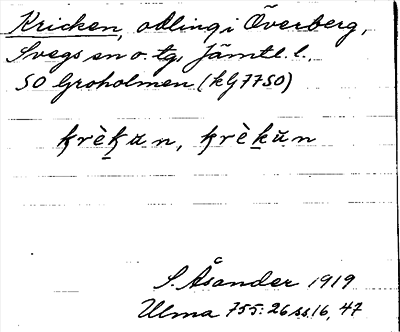 Kricken, odling i Överberg,
Svegs sn o. tg. Jämtl. l.
SO Groholmen (kG7750)
ḵrèḵun, ḵrèḵŭn
S. Åsander 1919
Ulma 755:26 ss 16, 47